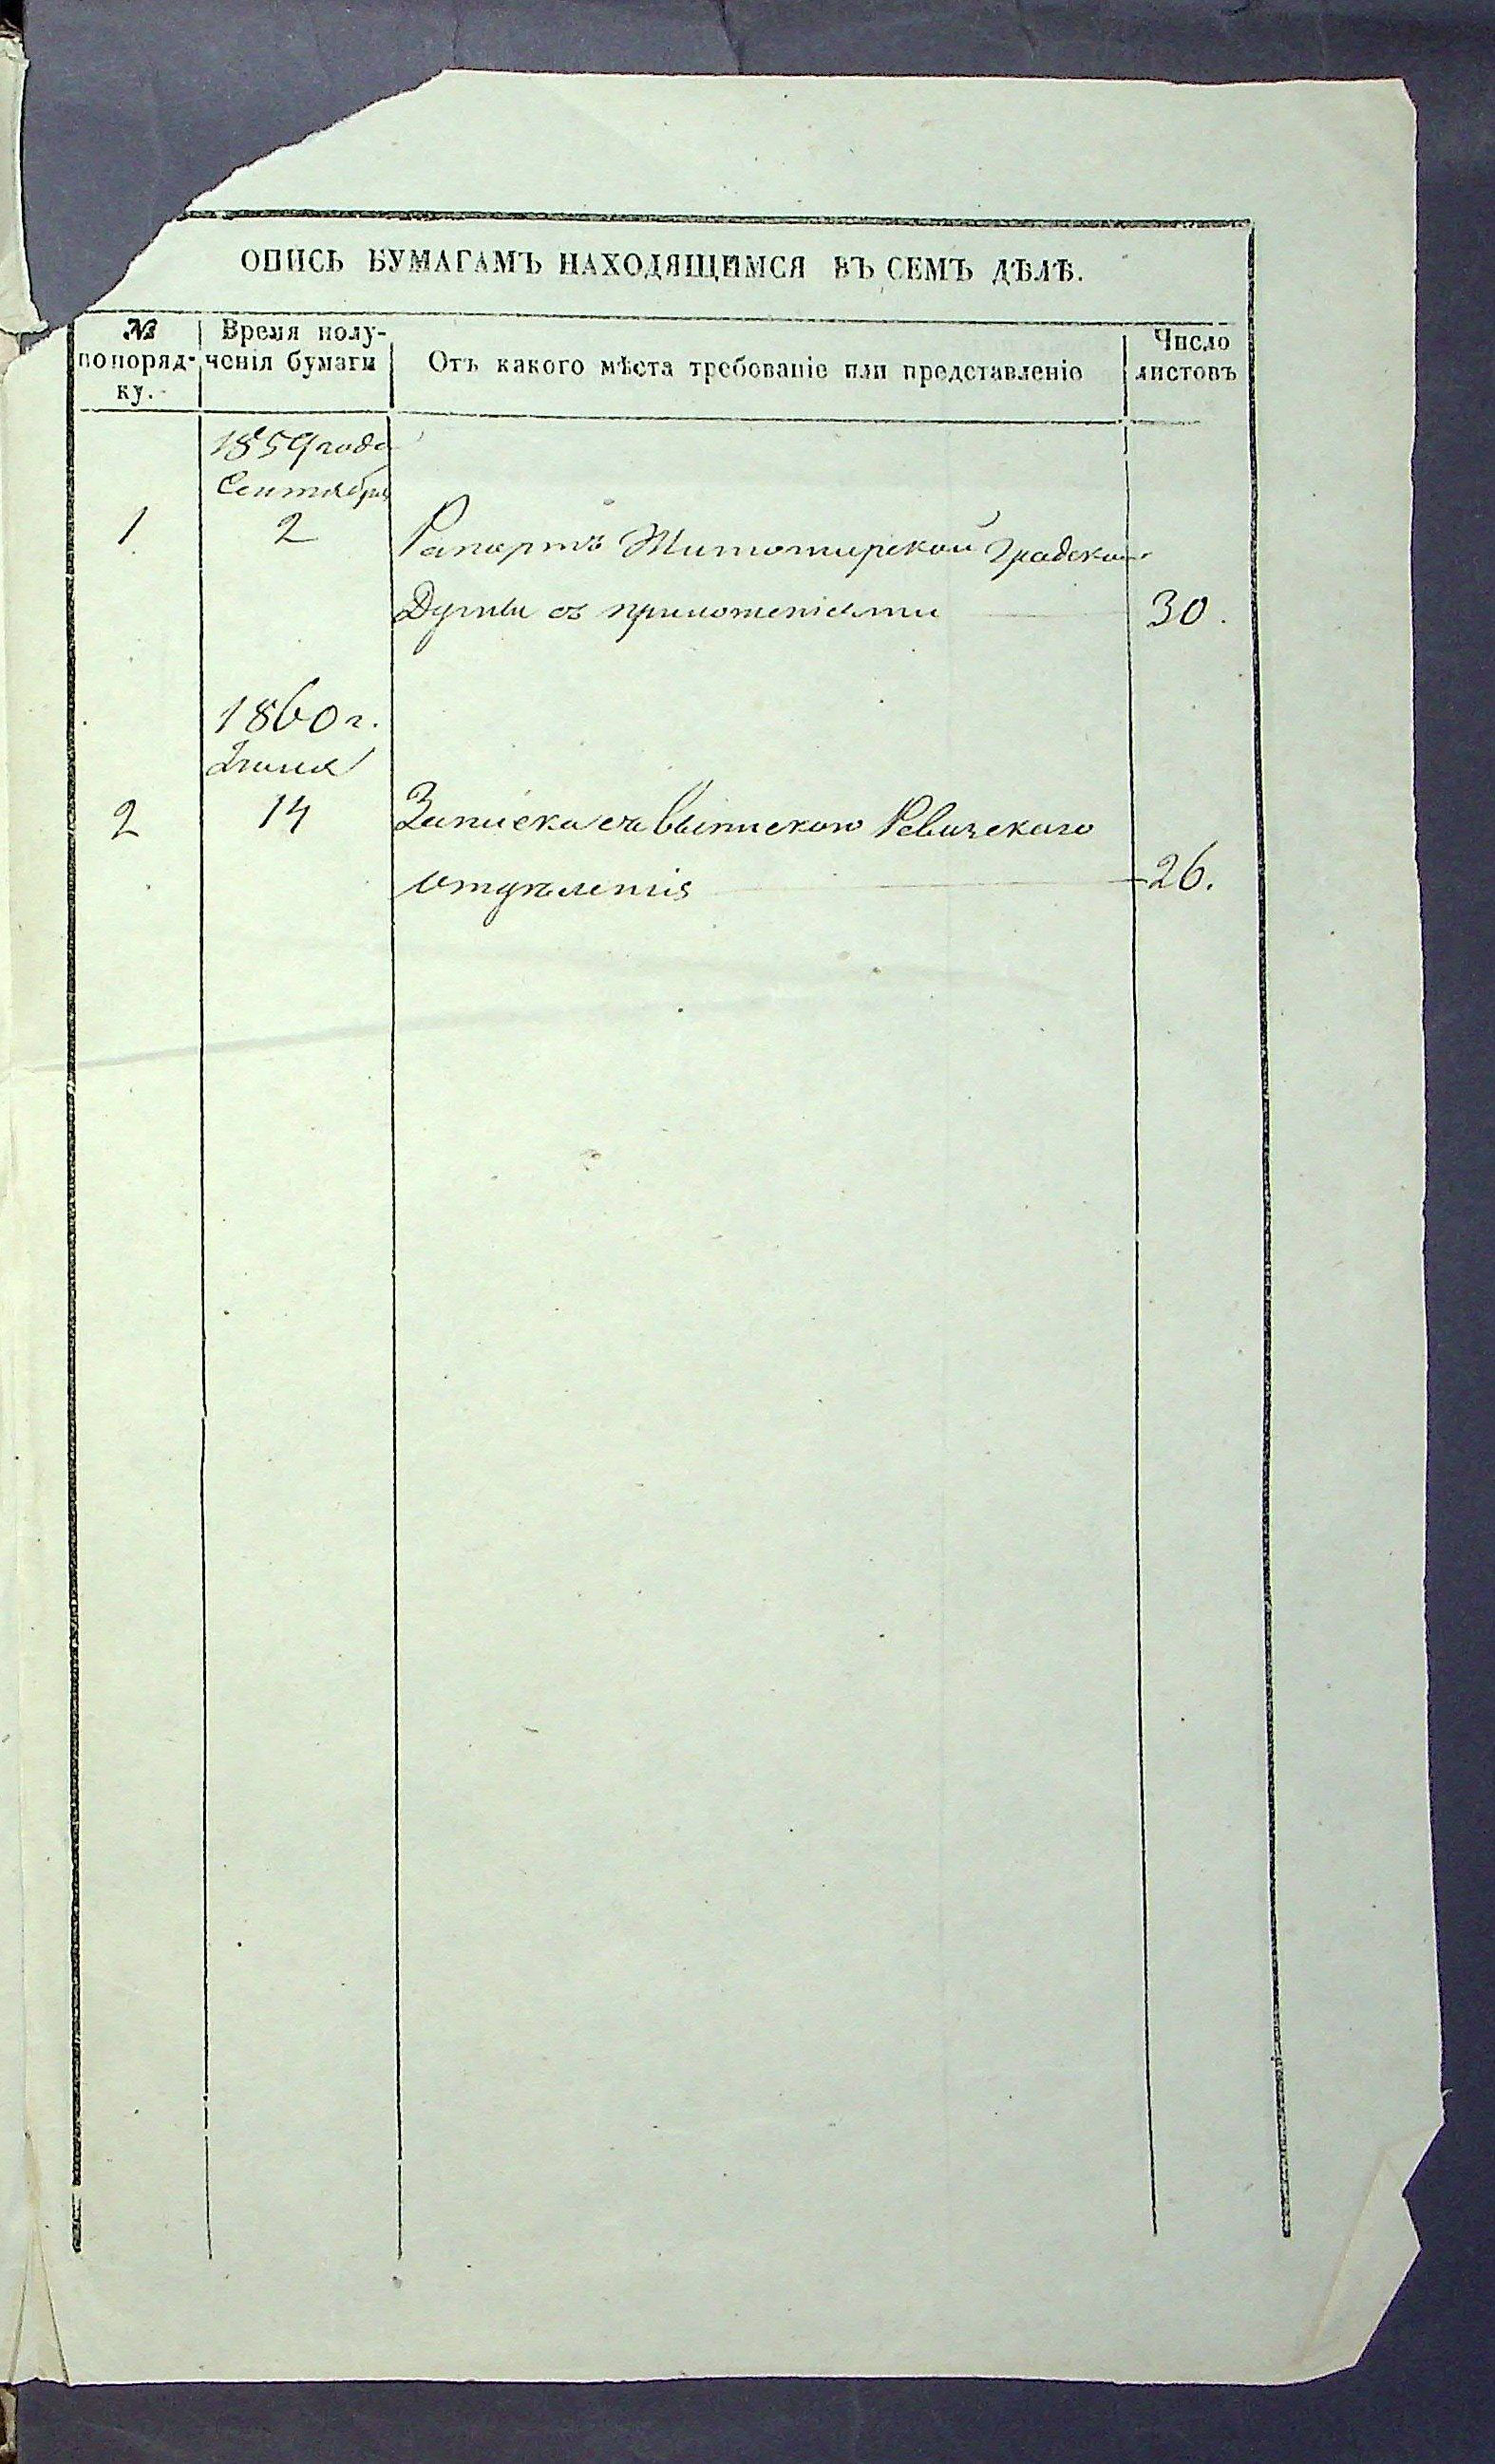 ОПИСЬ БУМАГАМЪ НАХОДЯЩИМСЯ ВЪ СЕМЪ ДѢЛѢ.
№ по поряд-ку.
Время полу-ченія бумаги
Отъ какого мѣста требованіе или представленіе
Число листовъ
1859 года
Сентября
1 2 Рапортъ Житомирской Градской
Думы съ приложеніями 30.
1860 г.
Іюля
2 14 Записка съ выпискою Ревизскаго
отдѣленія 26.